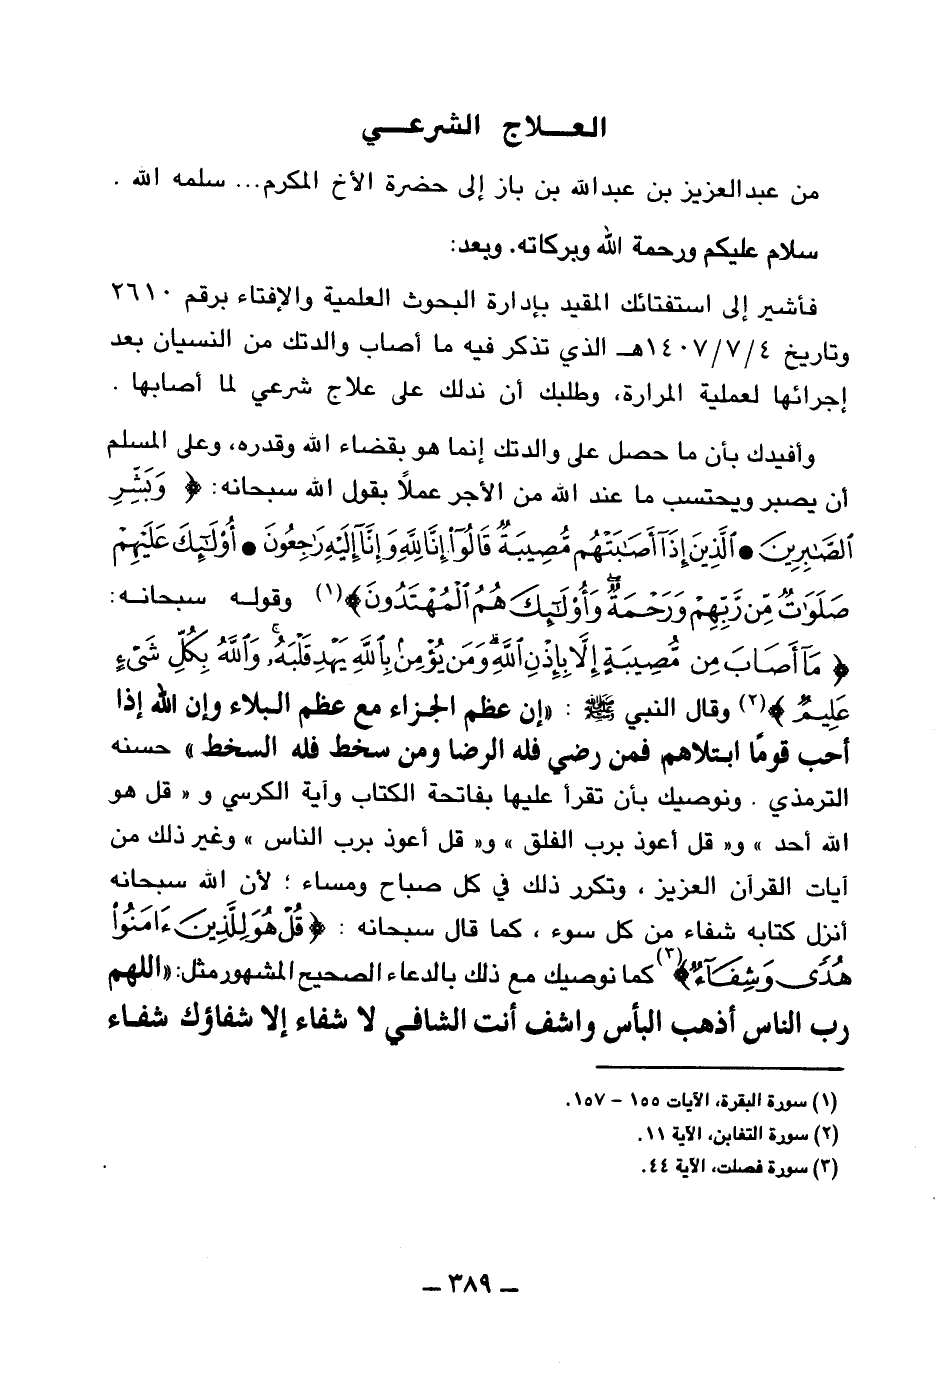 العـــلاج الشرعـــي
من عبدالعزيز بن عبدالله بن باز إلى حضرة الأخ المكرم... سلمه الله .
سلام عليكم ورحمة الله وبركاته. وبعد:
فأشير إلى استفتائك المقيد بإدارة البحوث العلمية والإفتاء برقم ٢٦١٠
وتاريخ ١٤٠٧/٧/٤هـ الذي تذكر فيه ما أصاب والدتك من النسيان بعد
إجرائها لعملية المرارة، وطلبك أن ندلك على علاج شرعي لما أصابها .
وأفيدك بأن ما حصل على والدتك إنما هو بقضاء الله وقدره، وعلى المسلم
أن يصبر ويحتسب ما عند الله من الأجر عملاً بقول الله سبحانه: ﴿ وَبَشِّرِ
ٱلصَّـٰبِرِينَ ● ٱلَّذِينَ إِذَآ أَصَـٰبَتْهُم مُّصِيبَةٌ قَالُوٓا۟ إِنَّا لِلَّهِ وَإِنَّآ إِلَيْهِ رَٰجِعُونَ ● أُو۟لَـٰٓئِكَ عَلَيْهِمْ
صَلَوَٰتٌ مِّن رَّبِّهِمْ وَرَحْمَةٌ ۖ وَأُو۟لَـٰٓئِكَ هُمُ ٱلْمُهْتَدُونَ ﴾(١) وقوله سبحانـه:
﴿ مَآ أَصَابَ مِن مُّصِيبَةٍ إِلَّا بِإِذْنِ ٱللَّهِ ۗ وَمَن يُؤْمِنۢ بِٱللَّهِ يَهْدِ قَلْبَهُۥ ۚ وَٱللَّهُ بِكُلِّ شَىْءٍ
عَلِيمٌ ﴾(٢) وقال النبي ﷺ : «إن عظم الجزاء مع عظم البلاء وإن الله إذا
أحب قومًا ابتلاهم فمن رضي فله الرضا ومن سخط فله السخط» حسنه
الترمذي . ونوصيك بأن تقرأ عليها بفاتحة الكتاب وآية الكرسي و « قل هو
الله أحد » و« قل أعوذ برب الفلق » و« قل أعوذ برب الناس » وغير ذلك من
آيات القرآن العزيز ، وتكرر ذلك في كل صباح ومساء ؛ لأن الله سبحانه
أنزل كتابه شفاء من كل سوء ، كما قال سبحانه : ﴿ قُلْ هُوَ لِلَّذِينَ ءَامَنُوا۟
هُدًى وَشِفَآءٌ ﴾(٣) كما نوصيك مع ذلك بالدعاء الصحيح المشهور مثل: «اللهم
رب الناس أذهب البأس واشف أنت الشافي لا شفاء إلا شفاؤك شفاء
(١) سورة البقرة، الآيات ١٥٥ – ١٥٧.
(٢) سورة التغابن، الآية ١١.
(٣) سورة فصلت، الآية ٤٤.
– ٣٨٩ –